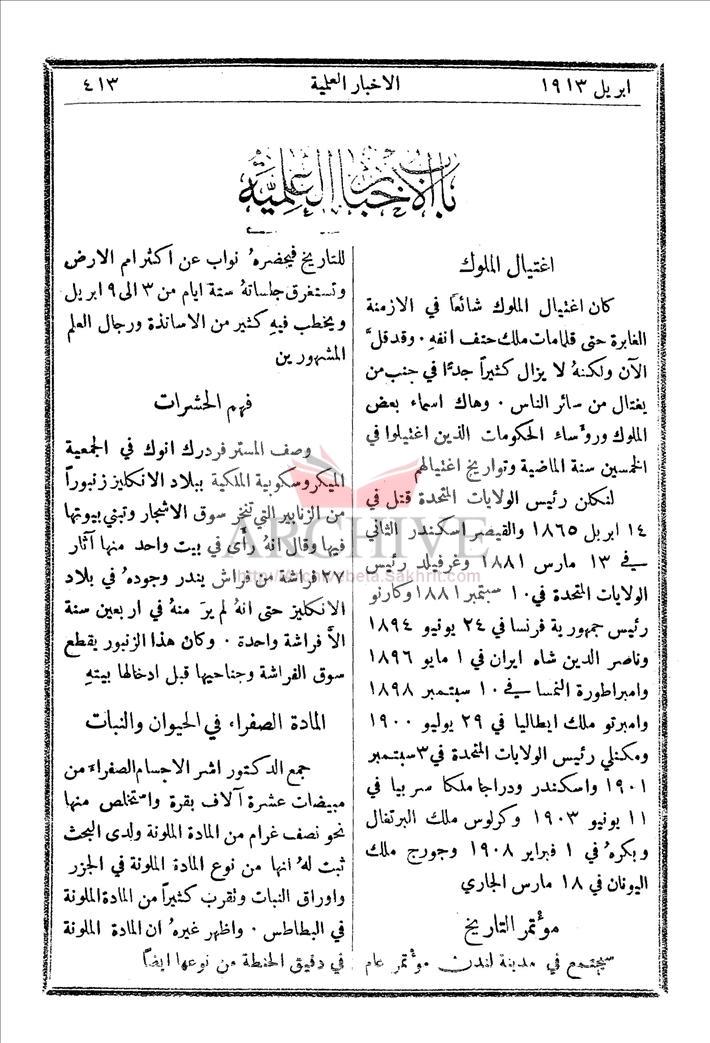 ابريل ١٩١٣
الاخبار العلمية
٤١٣
باب الاخبار العلمية
اغتيال الملوك
كان اغتيال الملوك شائعاً في الازمنة
الغابرة حتى قلما مات ملك حتف انفهِ . وقد قلَّ
الآن ولكنهُ لا يزال كثيراً جدًّا في جنب من
يغتال من سائر الناس . وهاك اسماء بعض
الملوك وروٴساء الحكومات الذين اغتيلوا في
الخمسين سنة الماضية وتواريخ اغتيالهم
لنكلن رئيس الولايات المتحدة قتل في
١٤ ابريل ١٨٦٥ والقيصر اسكندر الثاني
في ١٣ مارس ١٨٨١ وغرفيلد رئيس
الولايات المتحدة في ١٠ سبتمبر ١٨٨١ وكارنو
رئيس جمهورية فرنسا في ٢٤ يونيو ١٨٩٤
وناصر الدين شاه ايران في ١ مايو ١٨٩٦
وامبراطورة النمسا في ١٠ سبتمبر ١٨٩٨
وامبرتو ملك ايطاليا في ٢٩ يوليو ١٩٠٠
ومكنلي رئيس الولايات المتحدة في ٣ سبتمبر
١٩٠١ واسكندر ودراجا ملكا سربيا في
١١ يونيو ١٩٠٣ وكرلوس ملك البرتغال
وبكرهُ في ١ فبراير ١٩٠٨ وجورج ملك
اليونان في ١٨ مارس الجاري
موٴتمر التاريخ
سيجتمع في مدينة لندن موٴتمر عام
للتاريخ فيحضرهُ نواب عن اكثر امم الارض
وتستغرق جلساتهُ ستة ايام من ٣ الى ٩ ابريل
ويخطب فيهِ كثير من الاساتذة ورجال العلم
المشهورين
فهم الحشرات
وصف المستر فردرك انوك في الجمعية
الميكروسكوبية الملكية ببلاد الانكليز زنبوراً
من الزنابير التي تنخر سوق الاشجار وتبني بيوتها
فيها وقال انهُ رأَى في بيت واحد منها آثار
٢٧ فراشة من فراش يندر وجودهُ في بلاد
الانكليز حتى انهُ لم يرَ منهُ في اربعين سنة
الاَّ فراشة واحدة . وكان هذا الزنبور يقطع
سوق الفراشة وجناحيها قبل ادخالها بيتهِ
المادة الصفراء في الحيوان والنبات
جمع الدكتور اشر الاجسام الصفراء من
مبيضات عشرة آلاف بقرة واستخلص منها
نحو نصف غرام من المادة الملونة ولدى البحث
ثبت لهُ انها من نوع المادة الملونة في الجزر
واوراق النبات وتقرب كثيراً من المادة الملونة
في البطاطس . واظهر غيرهُ ان المادة الملونة
في دقيق الحنطة من نوعها ايضاً
ARCHIVE
beta.Sakhrit.com